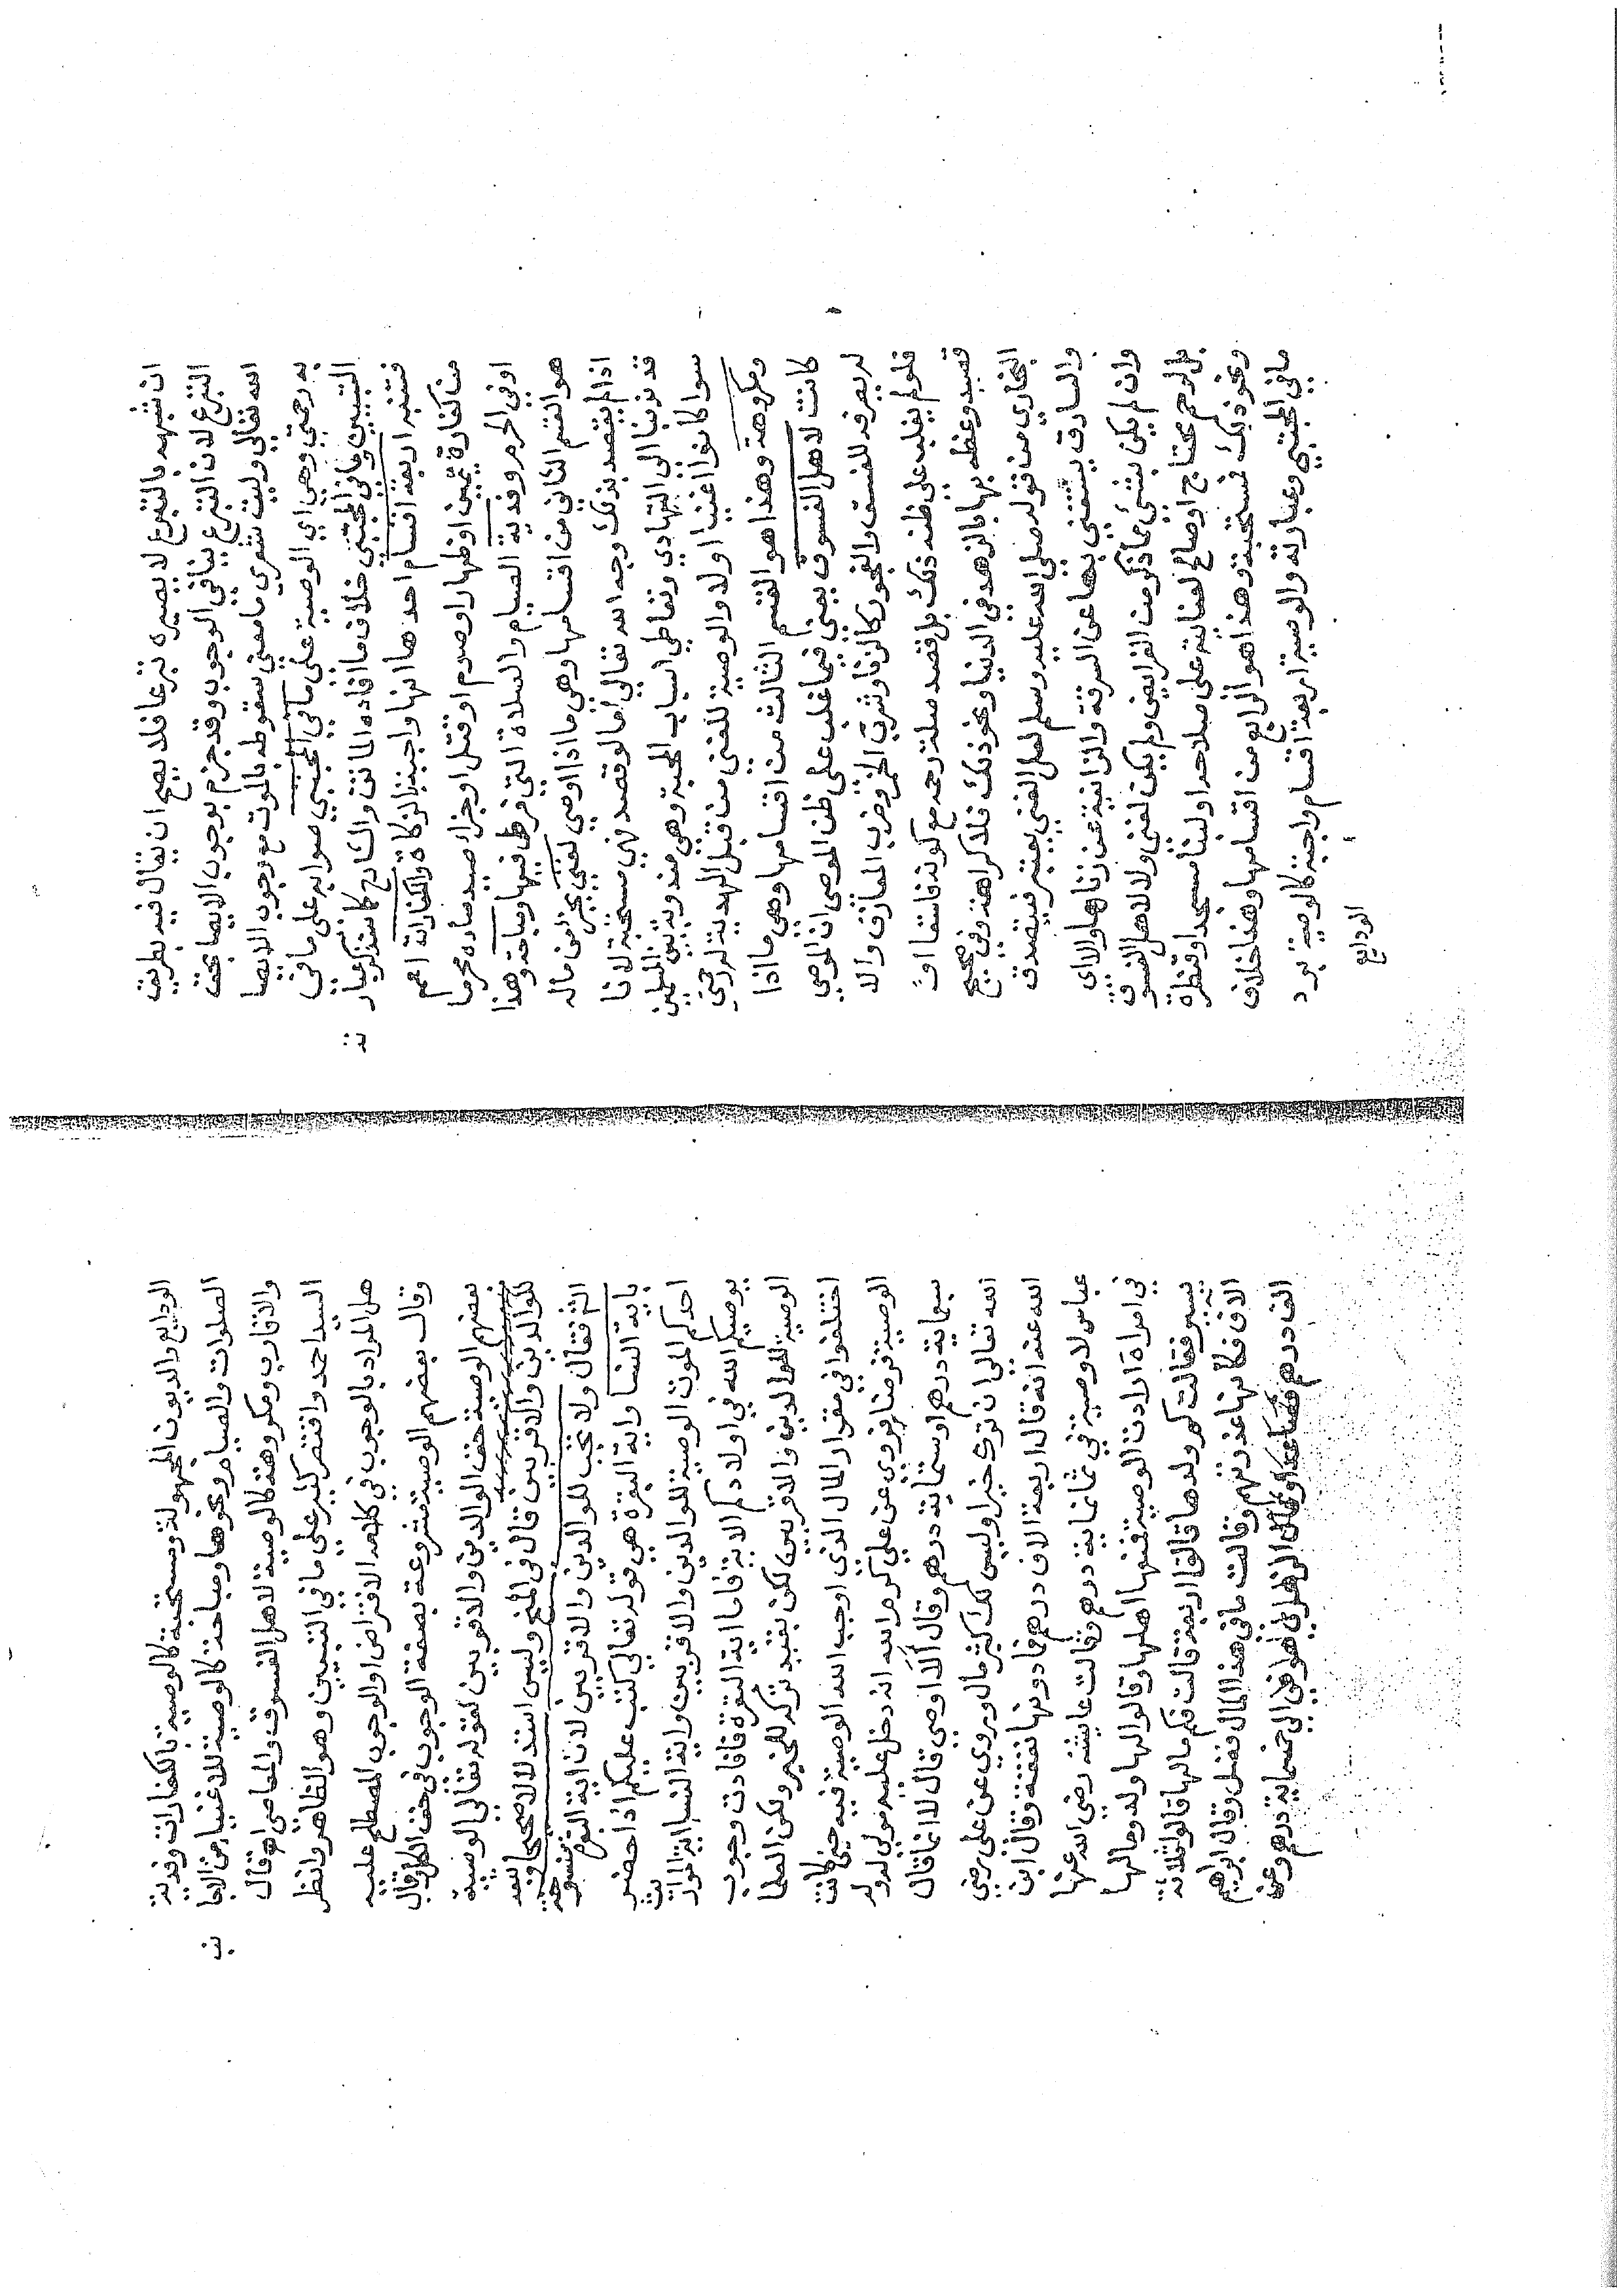 ان شبهه بالتبرع لا يصيره تبرعا فلا يصح ان يقال فيه بطريق
التبرع لان التبرع ينافي الوجوب وقد جزم بوجوب الايصا بحق
الله تعالى وليت شعري ما معنى سقوطه بالموت مع وجوب الايصا
به رحمتي وهي اي الوصية على ما في المجتبى سوا به على ما في
التبيين وما في المجتبى خلاف ما افاده الماتن والشارح كما ستذكر عبار
فتعتبر اربعة اقسام احدها انها واجبة بالزكاة والكفارة اعم
من كفارة يمين او ظهار او صوم او قتل او جزاء صيد صاده محرما
او في الحرم وفدية الصيام والصلاة التي فرط فيها ومباحة وهذا
هو القسم الثاني من اقسامها وهي ما اذا اوصى لغني بجزء من ماله
اذا لم يقصد بذلك وجه الله تعالى اما لو قصد فهي مستحبة لانا
قد ندبنا الى التهادي وتعاطي اسباب المحبة وهي مندوبة بين المسلمين
سوا كانوا اغنيا او لا والوصية للغني من قبيل الهدية له رحمتي
ومكروهة وهذا هو القسم الثالث من اقسامها وهي ما اذا
كانت لاهل الفسوق يعني فيما غلب على ظن الموصي ان الموصى
له يصرفه للفسق والفجور كالزنا وشرب الخمر وضرب المعازف والا
فلو لم يغلب على ظنه ذلك بل قصد صلة رحمه مع كونه فاسقا او
قصد وعظه بها بالزهد في الدنيا ونحو ذلك فلا كراهة وفي صحيح
البخاري من قوله صلى الله عليه وسلم لعل الغني يعتبر فيتصدق
والسارق يستغني بها عن السرقة والزانية عن زناها والا اي
وان لم يكن بشيء مما ذكر من الفرايض ولم يكن لغني ولا لاهل الفسوق
بل لرحم محتاج او صالح لعناية على صلاحه او لبناء مسجد او قنطرة
ونحو ذلك فمستحبة وهذا هو الرابع من اقسامها وهذا خلاف
ما في المجتبى وعبارته والوصية اربعة اقسام واجبة كالوصية برد
الودايع
الودايع والديون المجهولة ومستحبة كالوصية بالكفارات وفدية
الصلوات والصيام ونحوها ومباحة كالوصية للاغنيا من الاجا
والاقارب ومكروهة كالوصية لاهل الفسوق والمعاصي اهـ قال
السيد احمد واقتصر كثير على ما في التبيين وهو الظاهر وانظر
هل المراد بالوجوب في كلامه الافتراض او الوجوب المصطلح عليه
وقال بعضهم الوصية مشروعة بصفة الوجوب في حق الكل وقال
بعضهم الوصية حق الوالدين والاقربين لقوله تعالى الوصية
للوالدين والاقربين قال في المنح وليس استدلالا صحيحا وبعد
الثم فقال ولا تجب للوالدين والاقربين لان اية البقرة منسوخة
باية النسا واية البقرة هي قوله تعالى كتب عليكم اذا حضر
احدكم الموت الوصية للوالدين والاقربين واية النسا اية المواريث
يوصيكم الله في اولادكم الاية فاما اية البقرة فافادت وجوب
الوصية للوالدين والاقربين لكن بقيد تركه للخير ولكن العلما
اختلفوا في مقدار المال الذي اوجب الله الوصية فيه حين كانت
الوصية فرضا فروي عن علي كرم الله انه دخل على مولى له وله
سبعماية درهم او ستماية درهم وقال الا اوصي قال لا انما قال
الله تعالى ان ترك خيرا وليس لك كثير مال وروي عن علي رضي
الله عنه انه قال اربعة الاف درهم فما دونها نفقة وقال ابن
عباس لا وصية في ثمانماية درهم وقالت عايشة رضي الله عنها
في امراة ارادت الوصية فمنعها اهلها وقالوا لها ولد ومالها
يسير فقالت كم ولدها قالوا اربعة قالت فكم مالها قالوا ثلاثة
الاف فكانها عذرتهم وقالت ما في هذا المال فضل وقال ابراهيم
الف درهم الى خمسماية درهم وعن